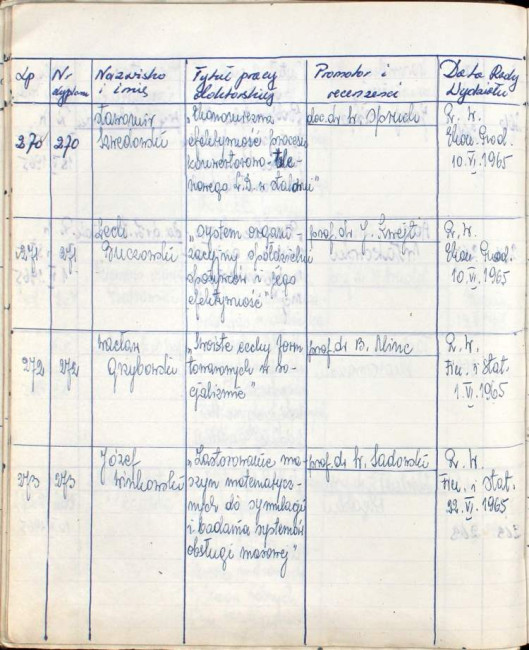 Lp
Nr
dyplom
Nazwisko
i imię
Tytuł pracy
doktorskiej
Promotor i
recenzenci
Data Rady
Wydziału
270
270
Ekonomiczna
efektywność procesu
konwertorowo-tle-
nowego L.D. w
doc. dr W.
R. W.
Ekon. Prod.
10.VI.1965
271
271
Lech
"System organi-
zacyjny spółdzielni
spożywców i jego
efektywność"
prof. dr J.
R. W.
Ekon. Prod.
10.VI.1965
272
272
Wacław
Grzybowski
"Swoiste cechy form
towarowych w so-
cjalizmie"
prof. dr B. Minc
R. W.
Fin. i Stat.
1.VI.1965
273
273
Józef
"Zastosowanie ma-
szyn matematycz-
nych do symulacji
i badania systemów
obsługi masowej"
prof. dr W. Sadowski
R. W.
Fin. i Stat.
22.VI.1965